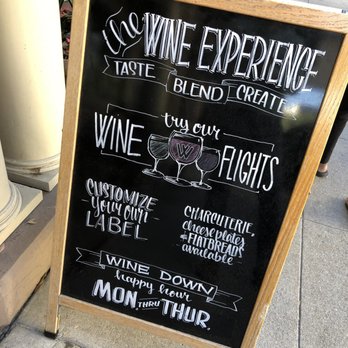 the WINE EXPERIENCE
TASTE BLEND CREATE
try our
WINE W FLIGHTS
CUSTOMIZE
YOUR OWN
LABEL
CHARCUTERIE,
cheese plates
& FLATBREADS
available
WINE DOWN
happy hour
MON THRU THUR.